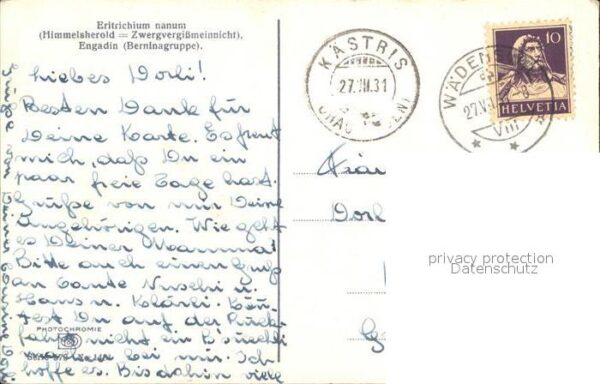 Eritrichium nanum
(Himmelsherold = Zwergvergißmeinnicht),
Engadin (Berninagruppe).
Liebes Dorli!
Besten Dank für
Deine Karte. Es freut
mich, daß Du ein
paar freie Tage hast.
Grüße von mir Deine
Angehörigen. Wie geht
es Deiner Mamma?
Bitte auch einen Gruß
an Tante Nuschi u.
Hans u. Klärli. Könn-
test Du auf der Rück-
fahrt nicht ein
machen bei mir. Ich
hoffe es. Bis dahin viele
PHOTOCHROMIE
KÄSTRIS
27.VII.31
WÄDEN
27.V
VIII
10
HELVETIA
Frau
Dor
privacy protection
Datenschutz